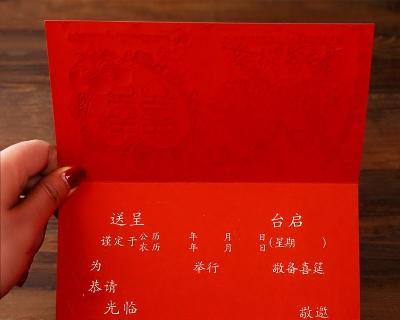 送呈 台启
谨定于 公历 年 月 日 (星期 )
农历 年 月 日
为 举行 敬备喜筵
恭请
光临 敬邀